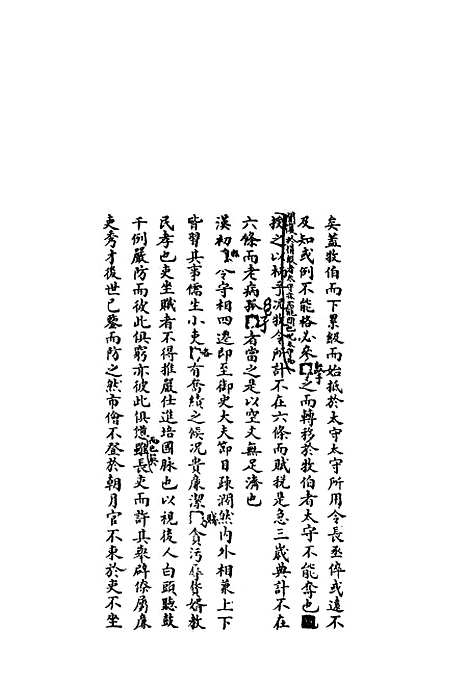 矣蓋牧伯而下累級而始抵於太守太守所用令長丞倅或遠不
及知或例不能格必參之而轉移於牧伯者太守不能奪也
授之以柄乎況牧令所計不在六條而賦稅是急三歲典計不在
六條而老病者當之是以空文無足濟也
漢初令守相四遷即至御史大夫節目疎濶然內外相兼上下
皆習其事儒生小吏有奮績之候況貴廉潔賤貪污辱贅婿教
民孝也吏坐贓者不得推嚴仕進培國脉也以視後人白頭聽鼓
千例嚴防而彼此俱窮亦彼此俱遁雖長吏而許其率辟僚屬廉
吏秀才後世已鑒而防之然市儈不登於朝月官不束於吏不坐